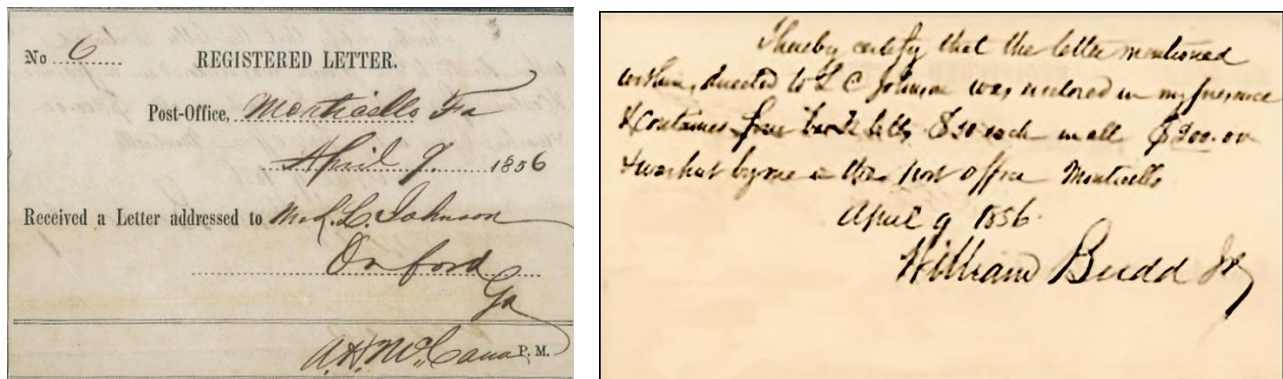 No 6
REGISTERED LETTER.
Post-Office, Monticello Fa
April 9. 1856
Received a Letter addressed to Mr L. C. Johnson
Oxford
Ga
A.H. McCann P.M.
I hereby certify that the letter mentioned
within, directed to L C Johnson was inclosed in my presence
& contained four bank bills $50 each in all $200.00
& was put by me in the post office Monticello
April 9 1856.
William Budd Jr